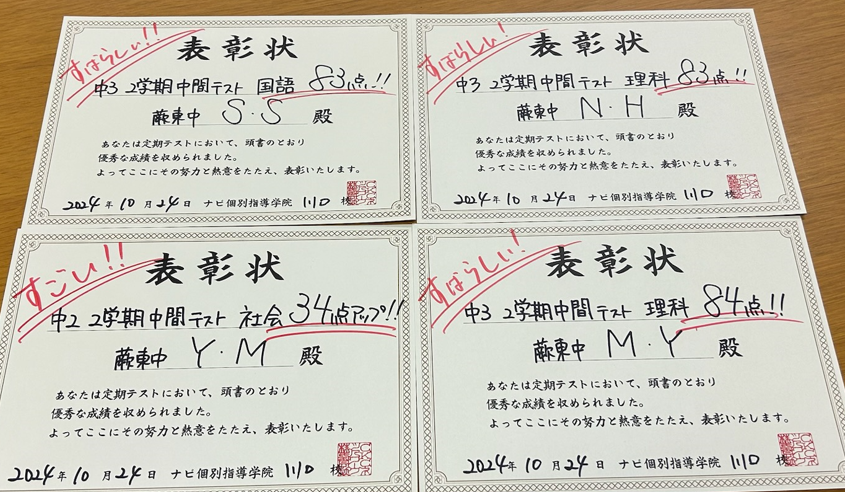 すばらしい!!
表彰状
中3 2学期中間テスト 国語 83点!!
蕨東中 S.S 殿
あなたは定期テストにおいて、頭書のとおり
優秀な成績を収められました。
よってここにその努力と熱意をたたえ、表彰いたします。
2024年10月24日 ナビ個別指導学院 川口 校
すばらしい!
表彰状
中3 2学期中間テスト 理科 83点!!
蕨東中 N・H 殿
あなたは定期テストにおいて、頭書のとおり
優秀な成績を収められました。
よってここにその努力と熱意をたたえ、表彰いたします。
2024年10月24日 ナビ個別指導学院 川口 校
すごい!!
表彰状
中2 2学期中間テスト 社会 34点アップ!!
蕨東中 Y.M 殿
あなたは定期テストにおいて、頭書のとおり
優秀な成績を収められました。
よってここにその努力と熱意をたたえ、表彰いたします。
2024年10月24日 ナビ個別指導学院 川口 校
すばらしい!
表彰状
中3 2学期中間テスト 理科 84点!!
蕨東中 M.Y 殿
あなたは定期テストにおいて、頭書のとおり
優秀な成績を収められました。
よってここにその努力と熱意をたたえ、表彰いたします。
2024年10月24日 ナビ個別指導学院 川口 校